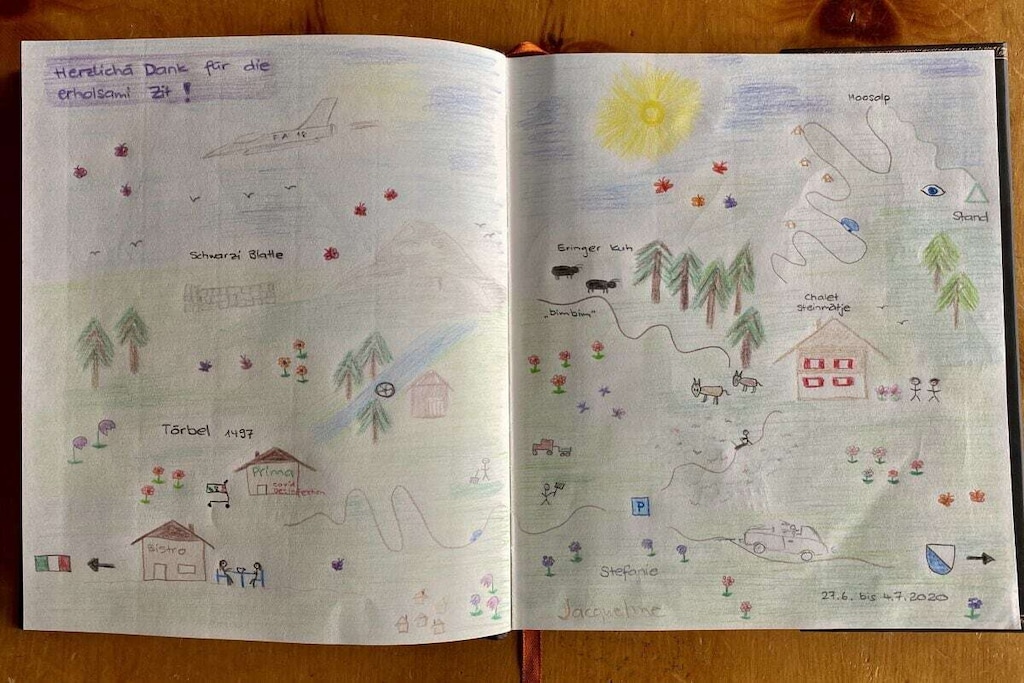 Herzlichä Dank für die
erholsami Zit !
FA 18
Schwarzi Blatte
Törbel 1497
Prima
covid
Desinfektion
Bistro
Moosalp
Stand
Eringer Kuh
„bimbim"
Chalet
Steinmatje
P
Stefanie
Jacqueline
27.6. bis 4.7.2020